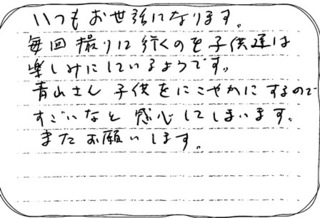 いつもお世話になります。
毎回撮りに行くのを子供達は
楽しみにしているようです。
青山さん 子供をにこやかにするので
すごいなと 感心してしまいます。
またお願いします。